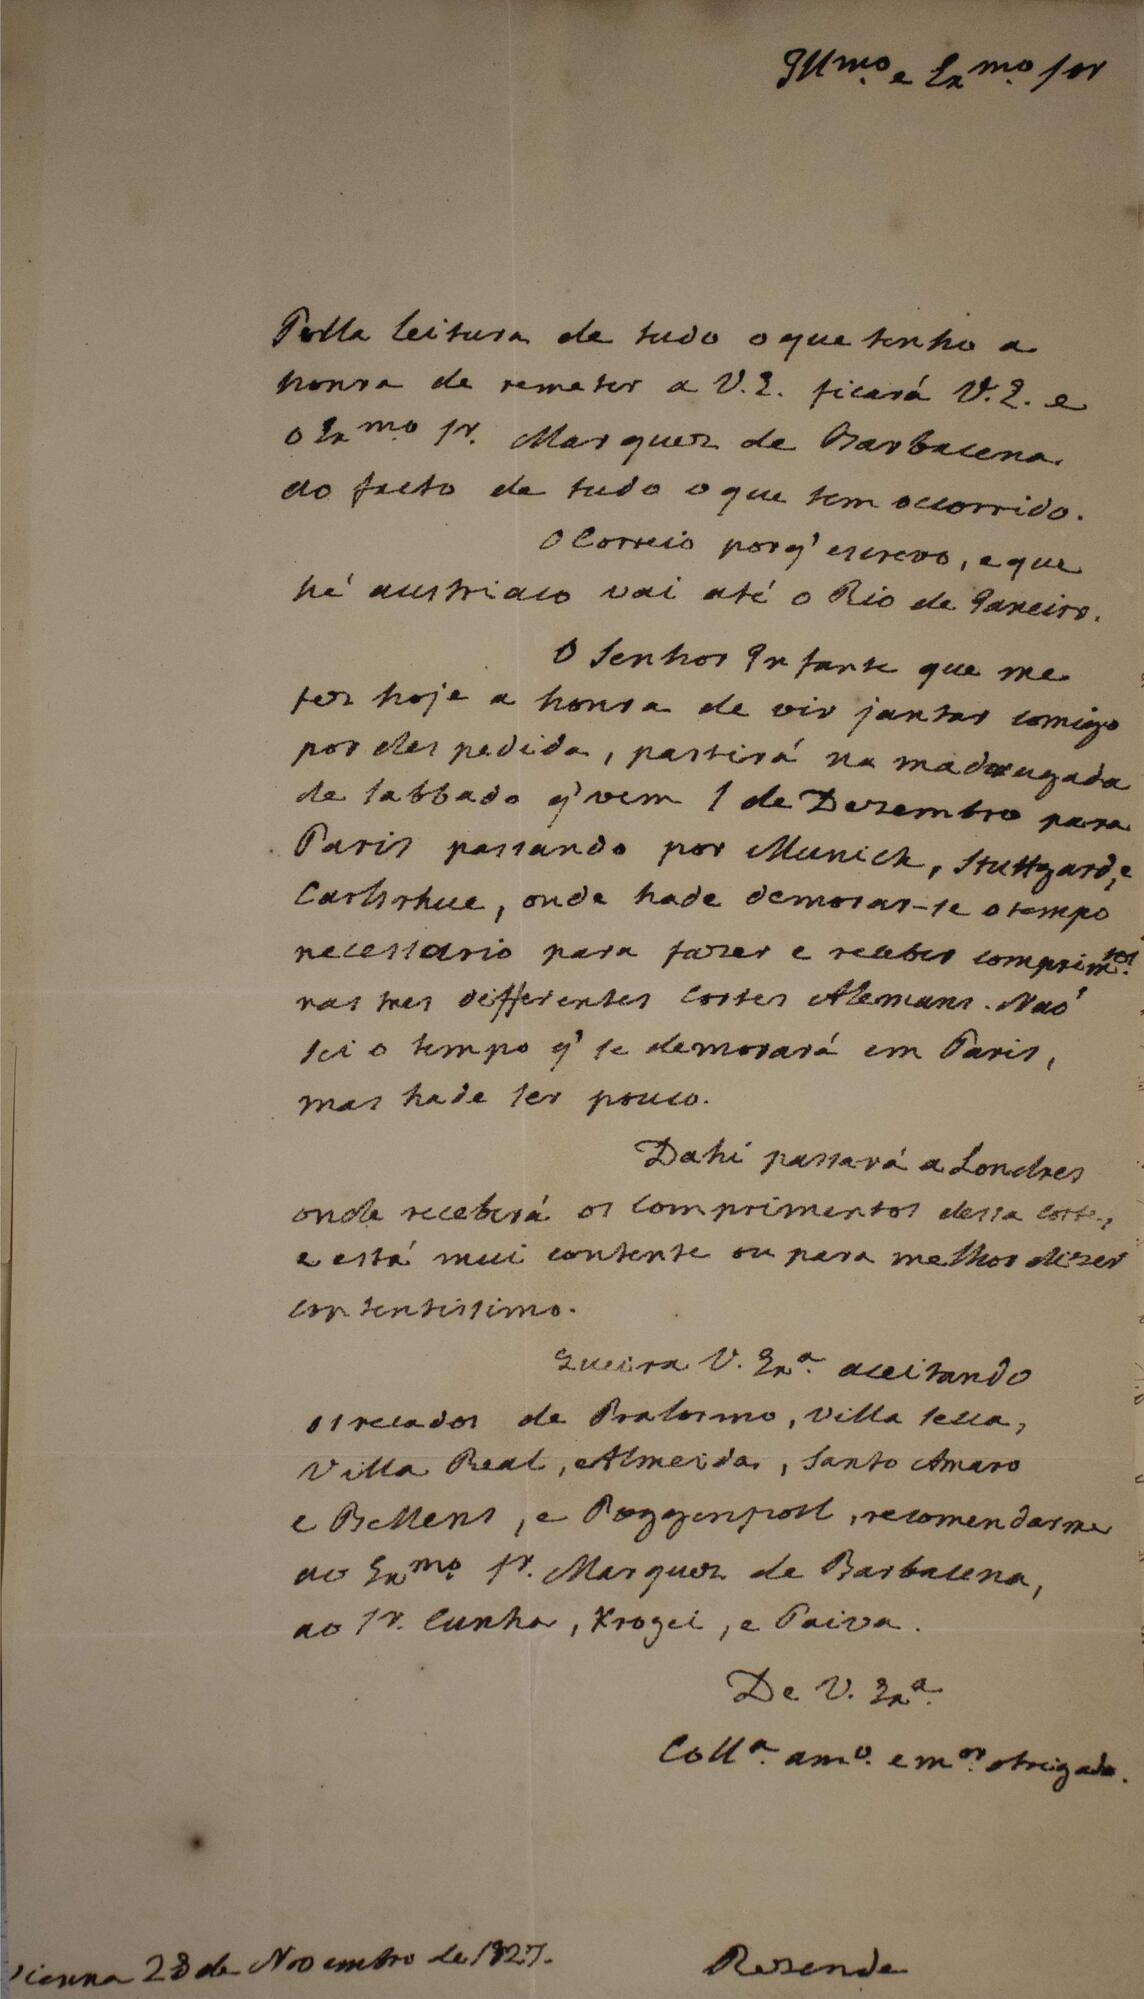 Illmo. e Exmo. Sor
Pella leitura de tudo o que tenho a
honra de remeter a V.E. ficará V.E. e
o Exmo. Sr. Marquez de Barbacena
ao facto de tudo o que tem occorrido.
O Correio porq' escrevo, e que
hé austriaco vai até o Rio de Janeiro.
O Senhor Infante que me
fez hoje a honra de vir jantar comigo
por despedida, partirá na madrugada
de Sabbado q' vem 1 de Dezembro para
Paris passando por Munich, Stuttgard, e
Carlsrhue, onde hade demorar-se o tempo
necessario para fazer e receber comprimtos.
nas tres differentes Cortes Alemans. Naó
sei o tempo q' se demorará em Paris,
mas hade ser pouco.
Dahi passará a Londres
onde receberá os comprimentos dessa Corte,
e está mui contente ou para melhor dizer
contentissimo.
Queira V. Exa. aceitando
os recados de Pralormo, Villa Secca,
Villa Real, e Almeida, Santo Amaro
e Bellens, e Poggenpohl, recomendarme
ao Exmo. Sr. Marquez de Barbacena,
ao Sr. Cunha, e Paiva.
De V. Exa.
Colla. amo. e mor. obrigado.
Vienna 28 de Novembro de 1827.
Rezende